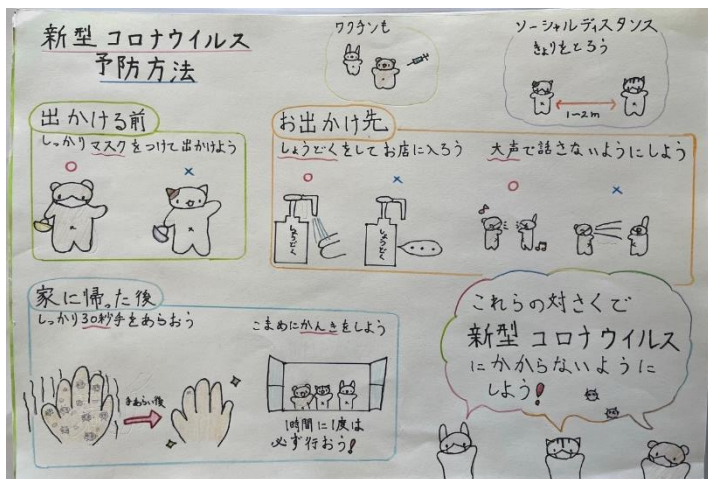 新型コロナウイルス
予防方法
ワクチンも
ソーシャルディスタンス
きょりをとろう
1~2m
出かける前
しっかりマスクをつけて出かけよう
○ ×
お出かけ先
しょうどくをしてお店に入ろう
○ ×
しょうどく
しょうどく
...
大声で話さないようにしよう
○ ×
家に帰った後
しっかり30秒手をあらおう
手あらい後
こまめにかんきをしよう
1時間に1度は
必ず行おう!
これらの対さくで
新型コロナウイルス
にかからないように
しよう!